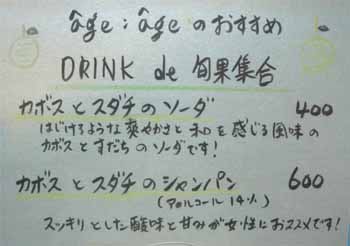 âge:âgeのおすすめ
DRINK de 旬果集合
カボスとスダチのソーダ 400
はじけるような爽やかさと和を感じる風味の
カボスとすだちのソーダです!
カボスとスダチのシャンパン 600
(アルコール 14%)
スッキリとした酸味と甘みが女性におススメです!